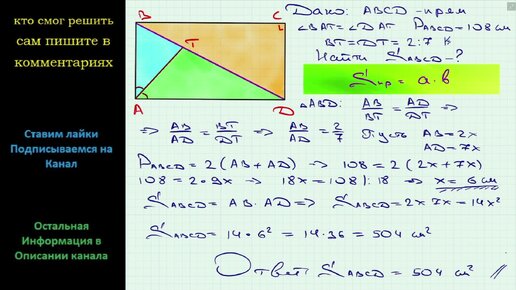 кто смог решить
сам пишите в
комментариях
Ставим лайки
Подписываемся на
Канал
Остальная
Информация в
Описании канала
B C
T
A D
Дано: ABCD - прям
∠BAT = ∠DAT P_ABCD = 108 см
BT : DT = 2:7
Найти S_ABCD - ?
S_пр = a · b
△ABD: AB/BT = AD/DT ⇒
⇒ AB/AD = BT/DT ⇒ AB/AD = 2/7 Пусть AB = 2x
AD = 7x
P_ABCD = 2(AB + AD) ⇒ 108 = 2(2x + 7x)
108 = 2 · 9x ⇒ 18x = 108 |: 18 ⇒ x = 6 см
S_ABCD = AB · AD ⇒ S_ABCD = 2x · 7x = 14x²
S_ABCD = 14 · 6² = 14 · 36 = 504 см²
Ответ S_ABCD = 504 см²